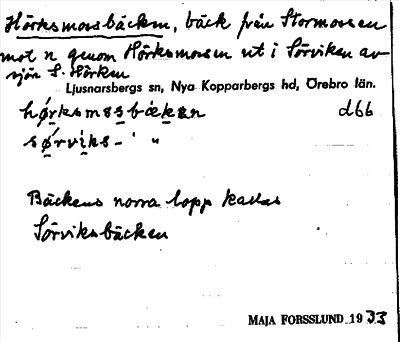 Hörksmossbäcken, bäck från Stormossen
mot n genom Hörksmossen ut i Sörviken av
sjön S. Hörken
Ljusnarsbergs sn, Nya Kopparbergs hd, Örebro län.
hørksmssbækɛn d66
sørviks- " "
Bäckens norra lopp kallas
Sörviksbäcken
MAJA FORSSLUND 1933